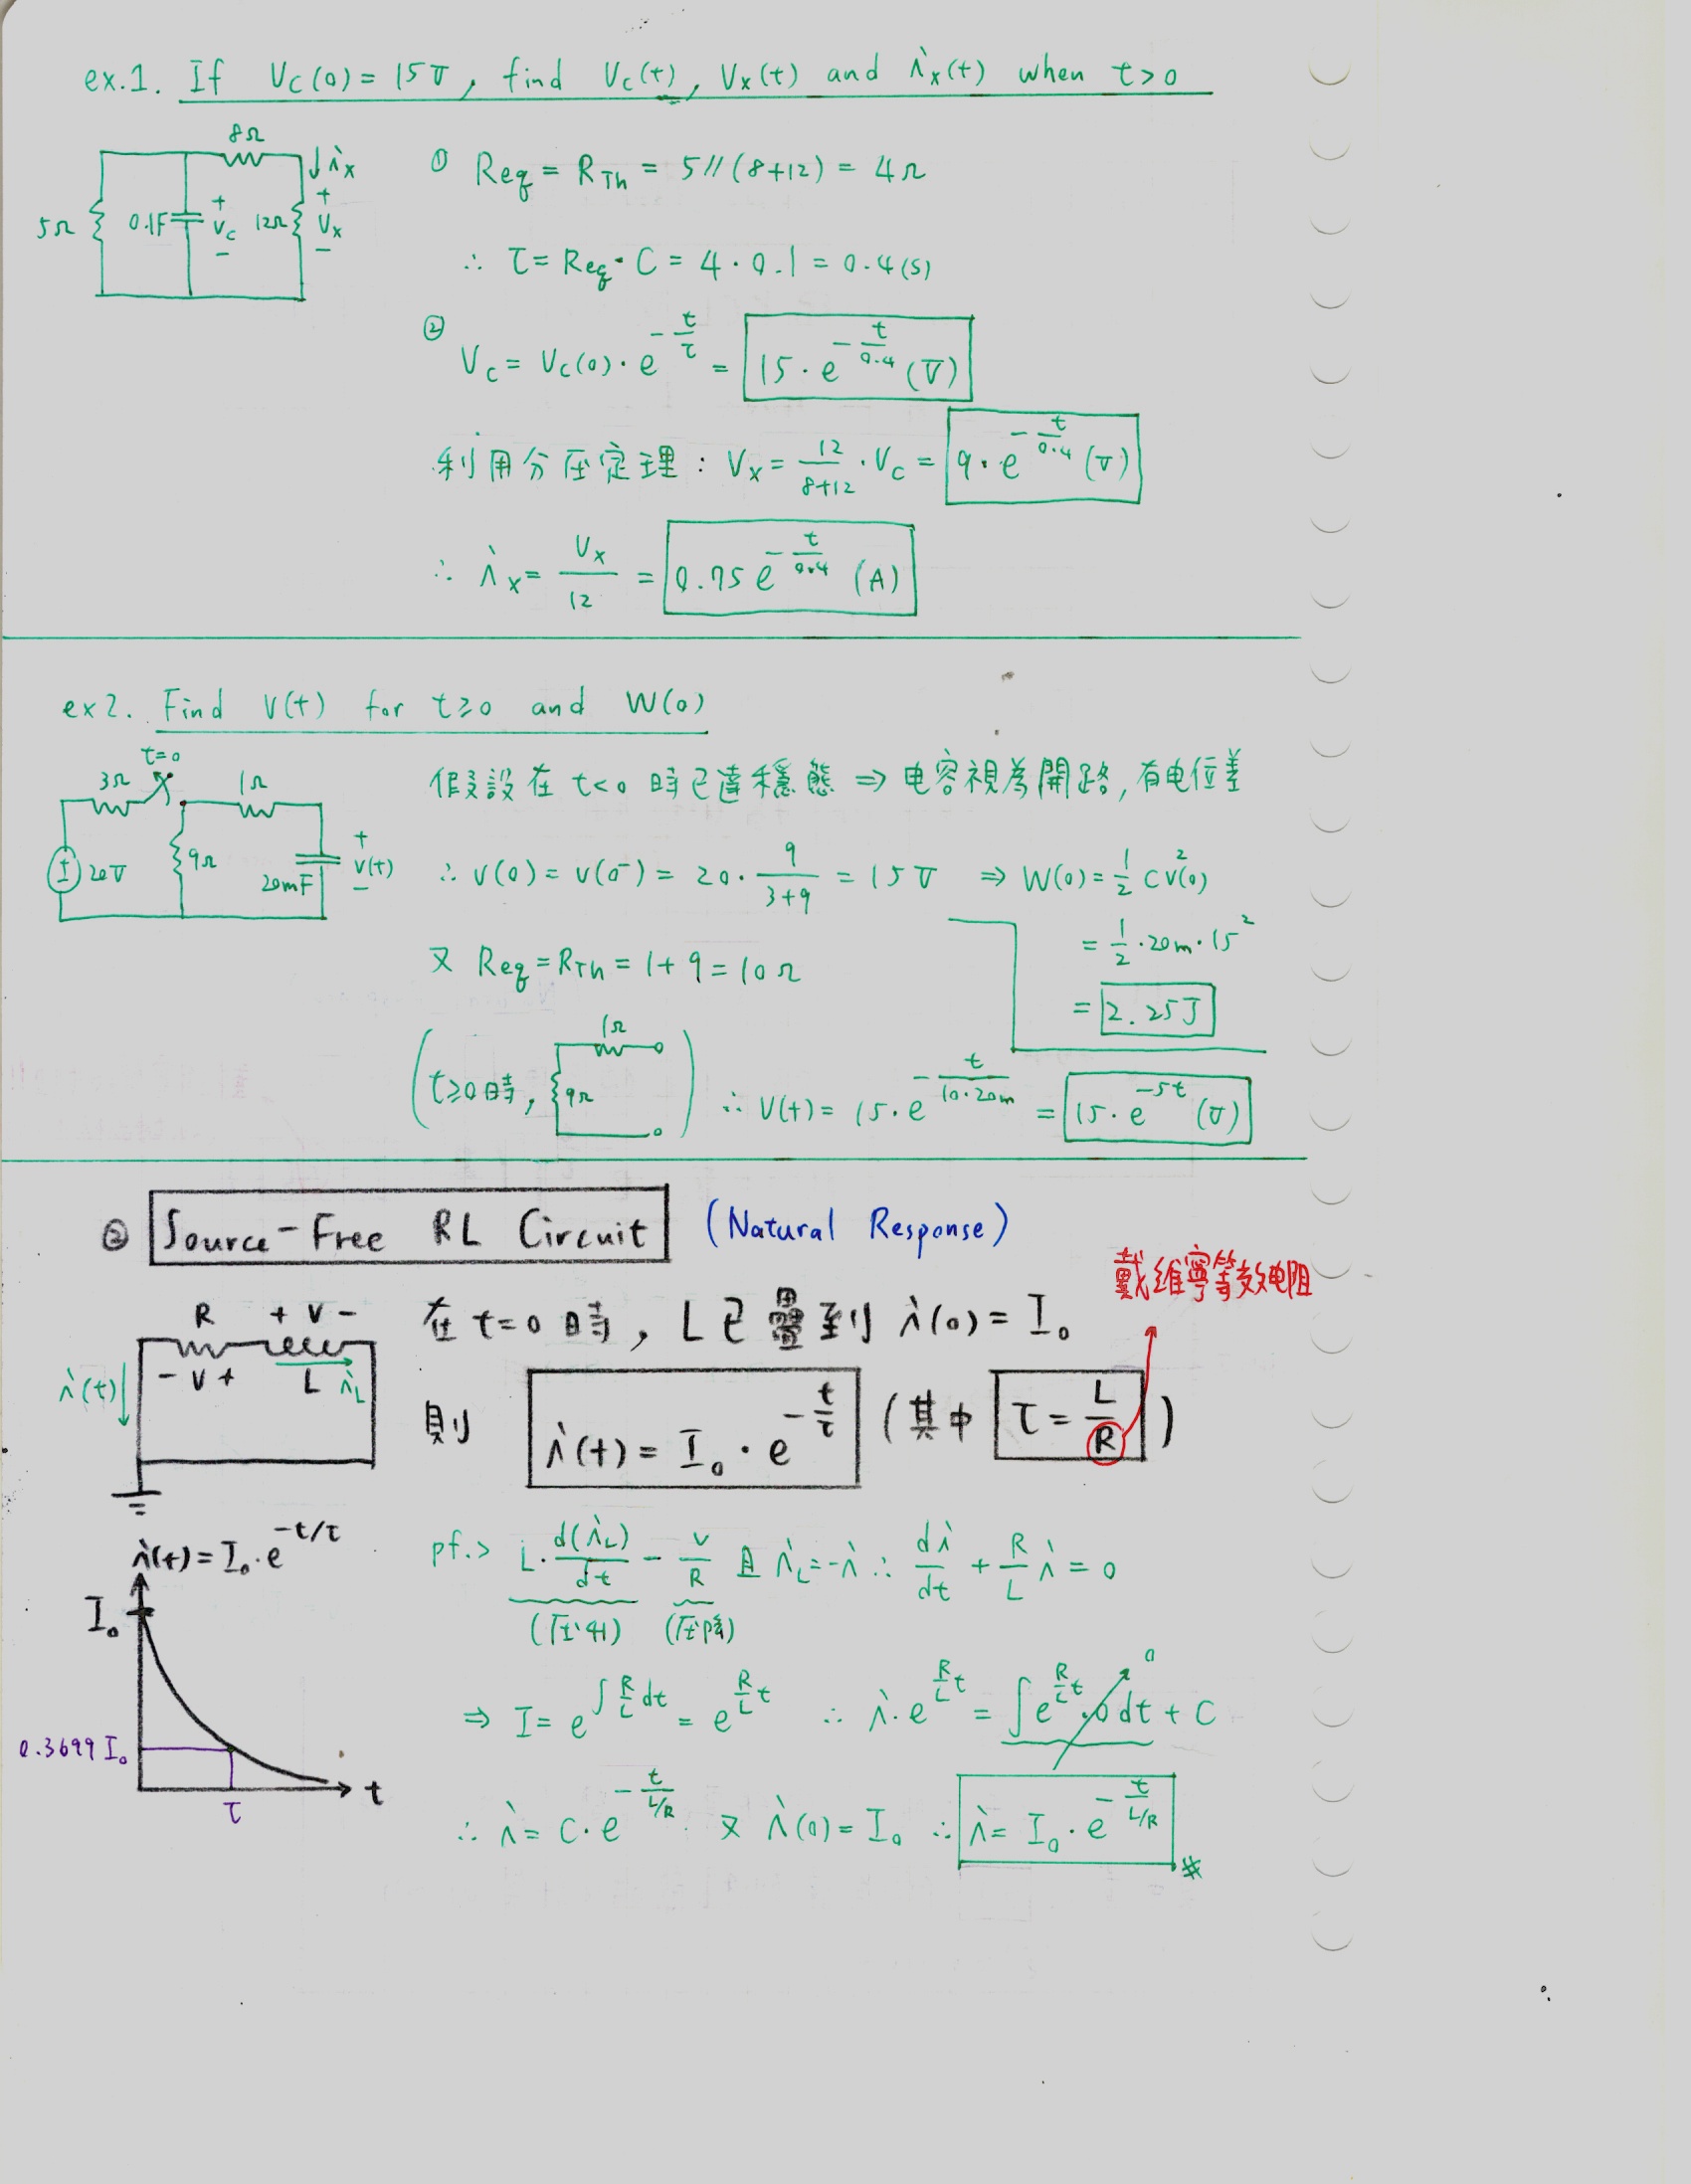 ex.1. If Vc(0) = 15V, find Vc(t), Vx(t) and ix(t) when t>0
8Ω
ix
5Ω 0.1F + Vc - 12Ω + Vx -
① Req = RTh = 5//(8+12) = 4Ω
∴ τ = Req · C = 4 · 0.1 = 0.4 (s)
② Vc = Vc(0) · e^(-t/τ) = 15 · e^(-t/0.4) (V)
利用分压定理 : Vx = 12/(8+12) · Vc = 9 · e^(-t/0.4) (V)
∴ ix = Vx/12 = 0.75 e^(-t/0.4) (A)
ex2. Find v(t) for t≥0 and W(0)
t=0
3Ω 1Ω
20V 9Ω 20mF + v(t) -
假設在 t<0 時已達穩態 ⇒ 电容視為開路, 有电位差
∴ v(0) = v(0⁻) = 20 · 9/(3+9) = 15V ⇒ W(0) = 1/2 C v²(0)
= 1/2 · 20m · 15²
= 2.25J
又 Req = RTh = 1 + 9 = 10Ω
(t≥0時, 1Ω 9Ω) ∴ V(t) = 15 · e^(-t/(10·20m)) = 15 · e^(-5t) (V)
② Source-Free RL Circuit (Natural Response)
戴維寧等效电阻
R + V -
- V + L iL
i(t)
在 t=0 時, L已疊到 i(0) = I₀
則 i(t) = I₀ · e^(-t/τ) (其中 τ = L/R)
i(t) = I₀ · e^(-t/τ)
I₀
0.3699 I₀
τ
t
pf.> L · d(iL)/dt - V/R 且 iL = -i ∴ di/dt + R/L i = 0
(压升) (压降)
⇒ I = e^(∫R/L dt) = e^(R/L t) ∴ i · e^(R/L t) = ∫e^(R/L t) · 0 dt + C
0
∴ i = C · e^(-t/(L/R)) 又 i(0) = I₀ ∴ i = I₀ · e^(-t/(L/R)) #